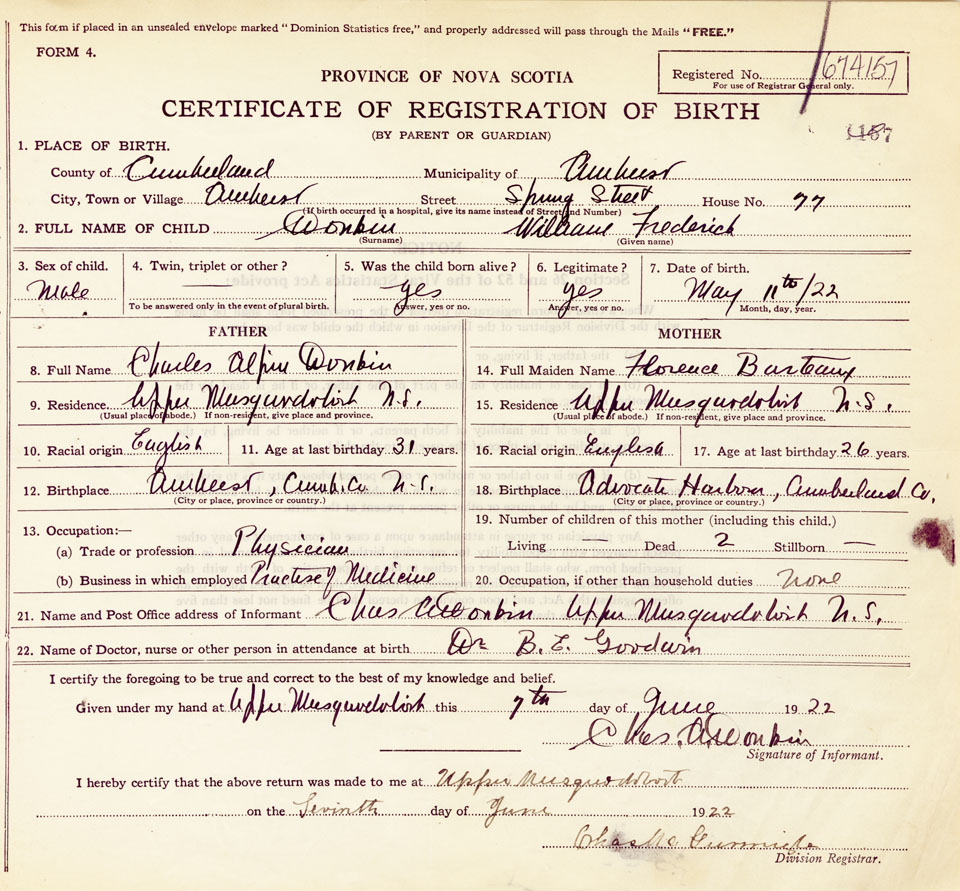 This form if placed in an unsealed envelope marked "Dominion Statistics free," and properly addressed will pass through the Mails "FREE."
FORM 4.
PROVINCE OF NOVA SCOTIA
Registered No. 674157
For use of Registrar General only.
CERTIFICATE OF REGISTRATION OF BIRTH
(BY PARENT OR GUARDIAN)
1. PLACE OF BIRTH.
County of Cumberland Municipality of Amherst
City, Town or Village Amherst Street Spring Street House No. 77
(If birth occurred in a hospital, give its name instead of Street and Number)
2. FULL NAME OF CHILD Donkin William Frederick
(Surname) (Given name)
3. Sex of child. 4. Twin, triplet or other? 5. Was the child born alive? 6. Legitimate? 7. Date of birth.
Male yes yes May 11th/22
To be answered only in the event of plural birth. Answer, yes or no. Answer, yes or no. Month, day, year.
FATHER MOTHER
8. Full Name Charles Alpin Donkin 14. Full Maiden Name Florence Barteaux
9. Residence Upper Musquodoboit N.S. 15. Residence Upper Musquodoboit N.S.
(Usual place of abode.) If non-resident, give place and province. (Usual place of abode.) If non-resident, give place and province.
10. Racial origin English 11. Age at last birthday 31 years. 16. Racial origin English 17. Age at last birthday 26 years.
12. Birthplace Amherst, Cumb. Co N.S. 18. Birthplace Advocate Harbour, Cumberland Co.
(City or place, province or country.) (City or place, province or country.)
13. Occupation:— 19. Number of children of this mother (including this child.)
(a) Trade or profession Physician Living — Dead 2 Stillborn —
(b) Business in which employed Practise of Medicine 20. Occupation, if other than household duties none
21. Name and Post Office address of Informant Chas A Donkin Upper Musquodoboit N.S.
22. Name of Doctor, nurse or other person in attendance at birth Dr B. E. Goodwin
I certify the foregoing to be true and correct to the best of my knowledge and belief.
Given under my hand at Upper Musquodoboit this 7th day of June 1922
Chas. A. Donkin
Signature of Informant.
I hereby certify that the above return was made to me at Upper Musquodoboit
on the Sevinth day of June 1922
Division Registrar.